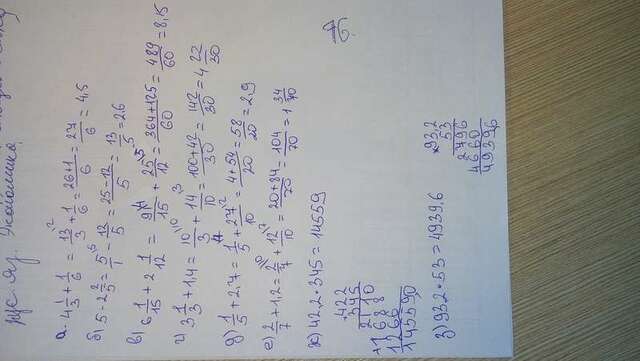 рус яз. Экономика,
а. 4 1/3 + 1/6 = 13/3 + 1/6 = 26+1/6 = 27/6 = 4,5
б) 5 - 2 2/5 = 5/1 - 12/5 = 25-12/5 = 13/5 = 2.6
в) 6 1/15 + 2 1/12 = 91/15 + 25/12 = 364+125/60 = 489/60 = 8,15
г) 3 1/3 + 1,4 = 10/3 + 14/10 = 100+42/30 = 142/30 = 4 22/30
д) 1/5 + 2,7 = 1/5 + 27/10 = 4+54/20 = 58/20 = 2.9
е) 2/7 + 1,2 = 2/7 + 12/10 = 20+84/70 = 104/70 = 1 34/70
ж) 42,2 · 345 = 14559
422
345
2110
1688
1266
145590
з) 93,2 · 53 = 4939.6
93,2
53
2796
4660
4939,6